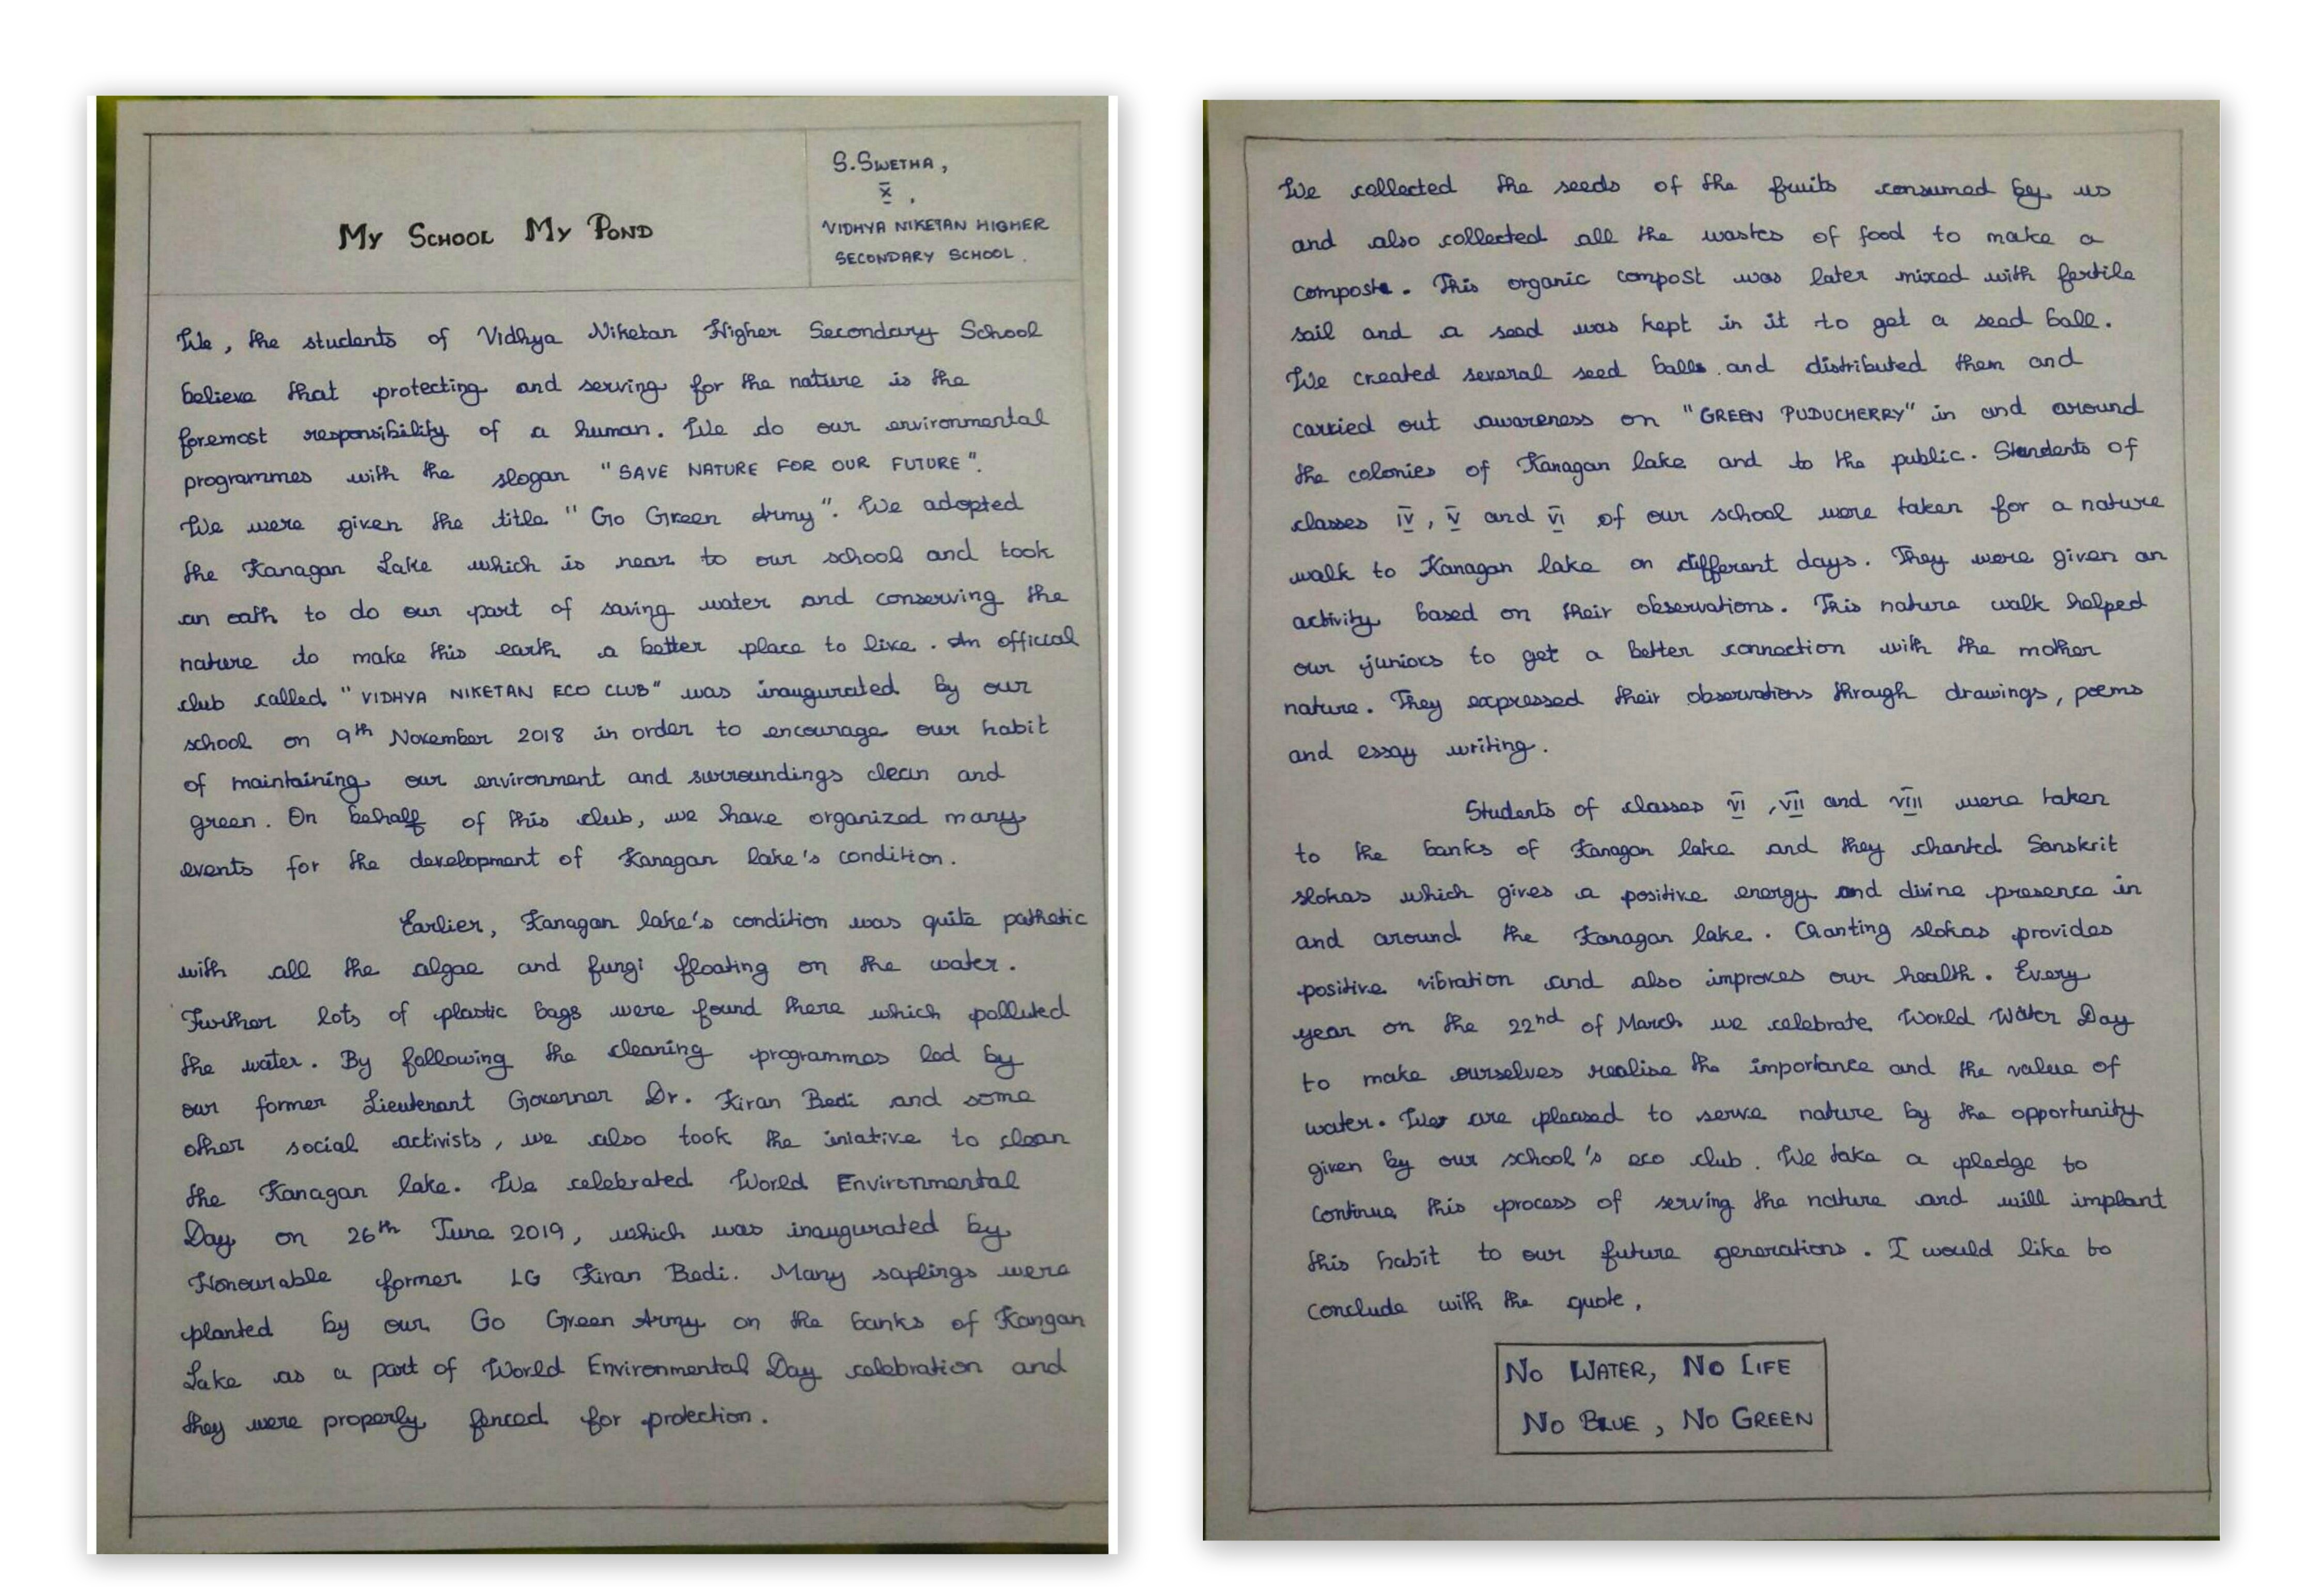 My School My Pond
S.Swetha,
X,
VIDHYA NIKETAN HIGHER
SECONDARY SCHOOL.
We, the students of Vidhya Niketan Higher Secondary School
believe that protecting and serving for the nature is the
foremost responsibility of a human. We do our environmental
programmes with the slogan "SAVE NATURE FOR OUR FUTURE".
We were given the title "Go Green Army". We adopted
the Kanagan Lake which is near to our school and took
an oath to do our part of saving water and conserving the
nature to make this earth a better place to live. An official
club called "VIDHYA NIKETAN ECO CLUB" was inaugurated by our
school on 9th November 2018 in order to encourage our habit
of maintaining our environment and surroundings clean and
green. On behalf of this club, we have organized many
events for the development of Kanagan lake's condition.
Earlier, Kanagan lake's condition was quite pathetic
with all the algae and fungi floating on the water.
Further lots of plastic bags were found there which polluted
the water. By following the cleaning programmes led by
our former Lieutenant Governer Dr. Kiran Bedi and some
other social activists, we also took the iniative to clean
the Kanagan lake. We celebrated World Environmental
Day on 26th June 2019, which was inaugurated by
Honourable former LG Kiran Bedi. Many saplings were
planted by our Go Green Army on the banks of Kangan
Lake as a part of World Environmental Day celebration and
they were properly fenced for protection.
We collected the seeds of the fruits consumed by us
and also collected all the wastes of food to make a
compost. This organic compost was later mixed with fertile
soil and a seed was kept in it to get a seed ball.
We created several seed balls and distributed them and
carried out awareness on "GREEN PUDUCHERRY" in and around
the colonies of Kanagan lake and to the public. Students of
classes IV, V and VI of our school were taken for a nature
walk to Kanagan lake on different days. They were given an
activity based on their observations. This nature walk helped
our juniors to get a better connection with the mother
nature. They expressed their observations through drawings, poems
and essay writing.
Students of classes VI, VII and VIII were taken
to the banks of Kanagan lake and they chanted Sanskrit
slokas which gives a positive energy and divine presence in
and around the Kanagan lake. Chanting slokas provides
positive vibration and also improves our health. Every
year on the 22nd of March we celebrate World Water Day
to make ourselves realise the importance and the value of
water. We are pleased to serve nature by the opportunity
given by our school's eco club. We take a pledge to
continue this process of serving the nature and will implant
this habit to our future generations. I would like to
conclude with the quote,
No WATER, No LIFE
No BLUE, No GREEN